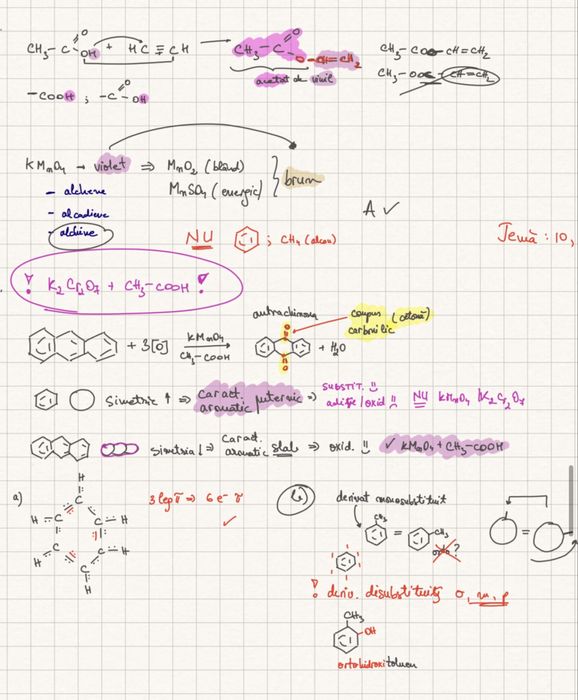 CH₃-C=O OH + HC≡CH → CH₃-C=O O-CH=CH₂
CH₃-COO-CH=CH₂
CH₃-OOC-CH=CH₂
acetat de vinil
-COOH ; -C=O OH
KMnO₄ → violet ⇒ MnO₂ (bland)
MnSO₄ (energic)
brun
- alchene
- alcadiene
- alchine
A ✓
NU ; CH₄ (alcan)
Temă : 10,
! K₂Cr₂O₇ + CH₃-COOH !
antrachinona
compus (cetonă)
carbonilic
+ 3[O] KMnO₄ CH₃-COOH → + H₂O
O
O
simetric ↑ ⇒ Caract. aromatic puternic ⇒ SUBSTIT. adiție/oxid. NU KMnO₄ K₂Cr₂O₇
simetria ↓ ⇒ Caract. aromatic slab ⇒ oxid. ✓ KMnO₄ + CH₃-COOH
a)
H
C
H C C H
H C C H
C
H
3 leg π ⇒ 6 e⁻ π
✓
derivat monosubstituit
CH₃ = CH₃
?
! deriv. disubstituiți o, m, p
CH₃
OH
ortohidroxitoluen